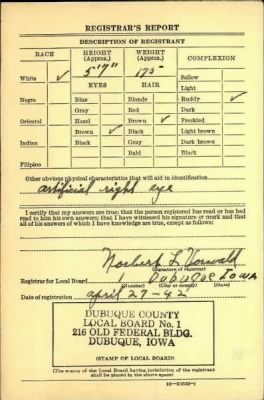 REGISTRAR'S REPORT
DESCRIPTION OF REGISTRANT
RACE HEIGHT (Approx.) WEIGHT (Approx.) COMPLEXION
5'7" 175
White ✓ Sallow
EYES HAIR Light
Negro Blue Blonde Ruddy ✓
Gray Red Dark
Oriental Hazel Brown ✓ Freckled
Brown ✓ Black Light brown
Indian Black Gray Dark brown
Bald Black
Filipino
Other obvious physical characteristics that will aid in identification
artificial right eye
I certify that my answers are true; that the person registered has read or has had
read to him his own answers; that I have witnessed his signature or mark and that
all of his answers of which I have knowledge are true, except as follows:
Norbert L Vorwald
(Signature of registrar)
Registrar for Local Board Dubuque Iowa
(Number) (City or county) (State)
Date of registration april 27-42
DUBUQUE COUNTY
LOCAL BOARD No. 1
216 OLD FEDERAL BLDG.
DUBUQUE, IOWA
(STAMP OF LOCAL BOARD)
(The stamp of the Local Board having jurisdiction of the registrant
shall be placed in the above space)